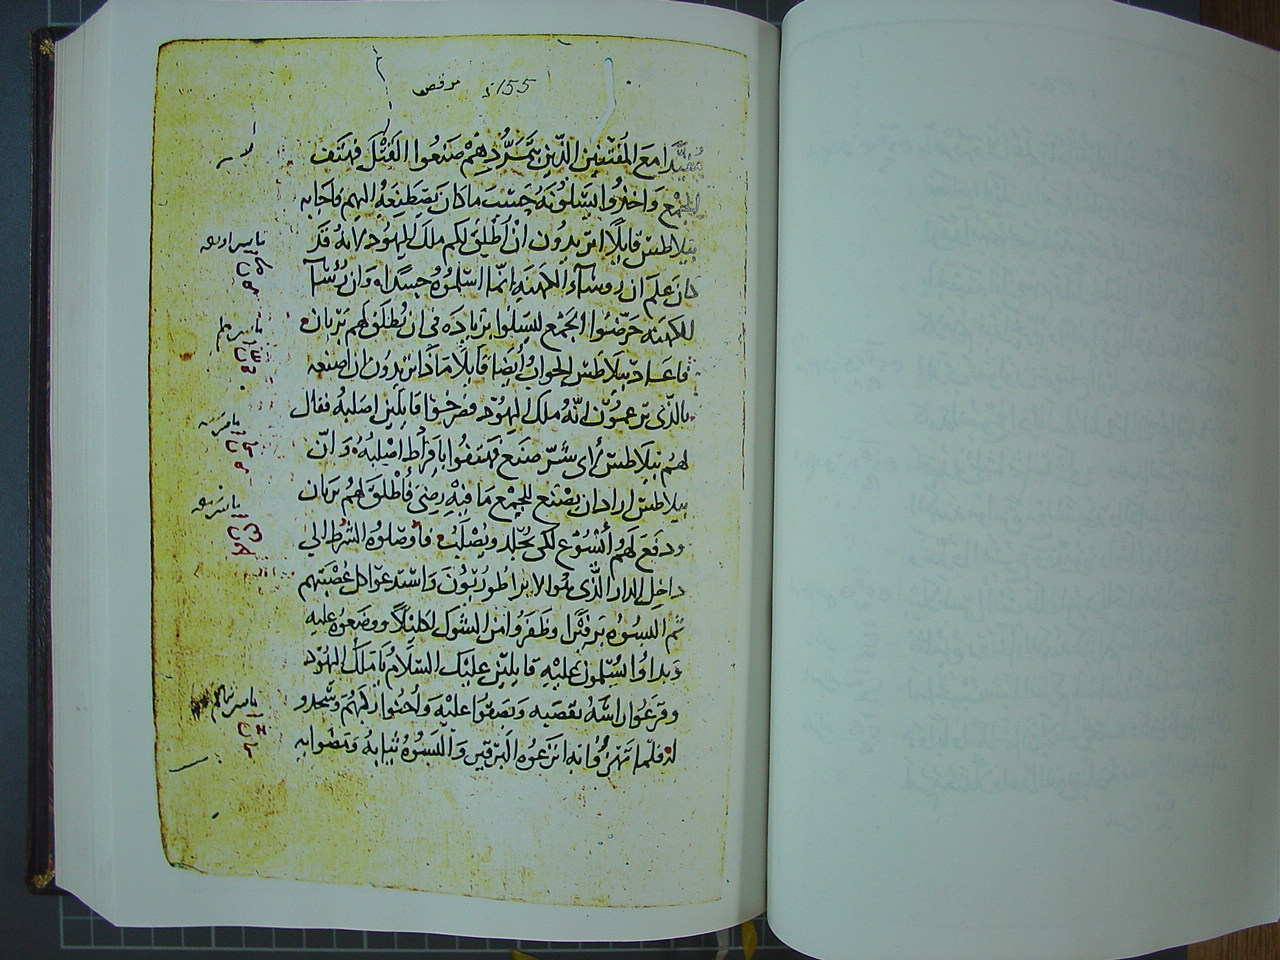 مرقص 155
مقيدا مع المفتنين الذين بتمردهم صنعوا القتل فهتف
الجمع واخذوا يسلونه حسب ما كان يصطنعه اليهم فاجابه
بيلاطس قايلا اتريدون ان أطلق لكم ملك اليهود لانه قد
كان علم ان روساء الكهنه انما اسلموه حسدا له وان رؤسآ
الكهنه حرضوا الجمع ليسلوا بزياده في ان يطلق لهم بربان
فاعاد بيلاطس الجواب أيضا قايلا ماذا تريدون ان اصنعه
بالذى تزعمون انه ملك اليهود فصرخوا قايلين اصلبه فقال
لهم بيلاطس أى شر صنع فهتفوا بافراط اصلبه وان
بيلاطس اراد ان يصنع للجمع ما فيه رضى فأطلق لهم بربان
ودفع لهم أيسوع لكى يجلد ويصلب فأوصلوه الشرط الي
داخل الدار الذى هو الابراطوريون واستدعوا كل عصبتهم
ثم البسوه برفيرا وظفروا من الشوك اكليلا ووضعوه عليه
وبداوا يسلمون عليه قايلين عليك السلام يا ملك اليهود
وقرعوا راسه بقصبه وبصقوا عليه وأحنوا ركبهم وسجدو
له فلما تهزوا به انزعوه البرفير والبسوه ثيابه ومضوا به